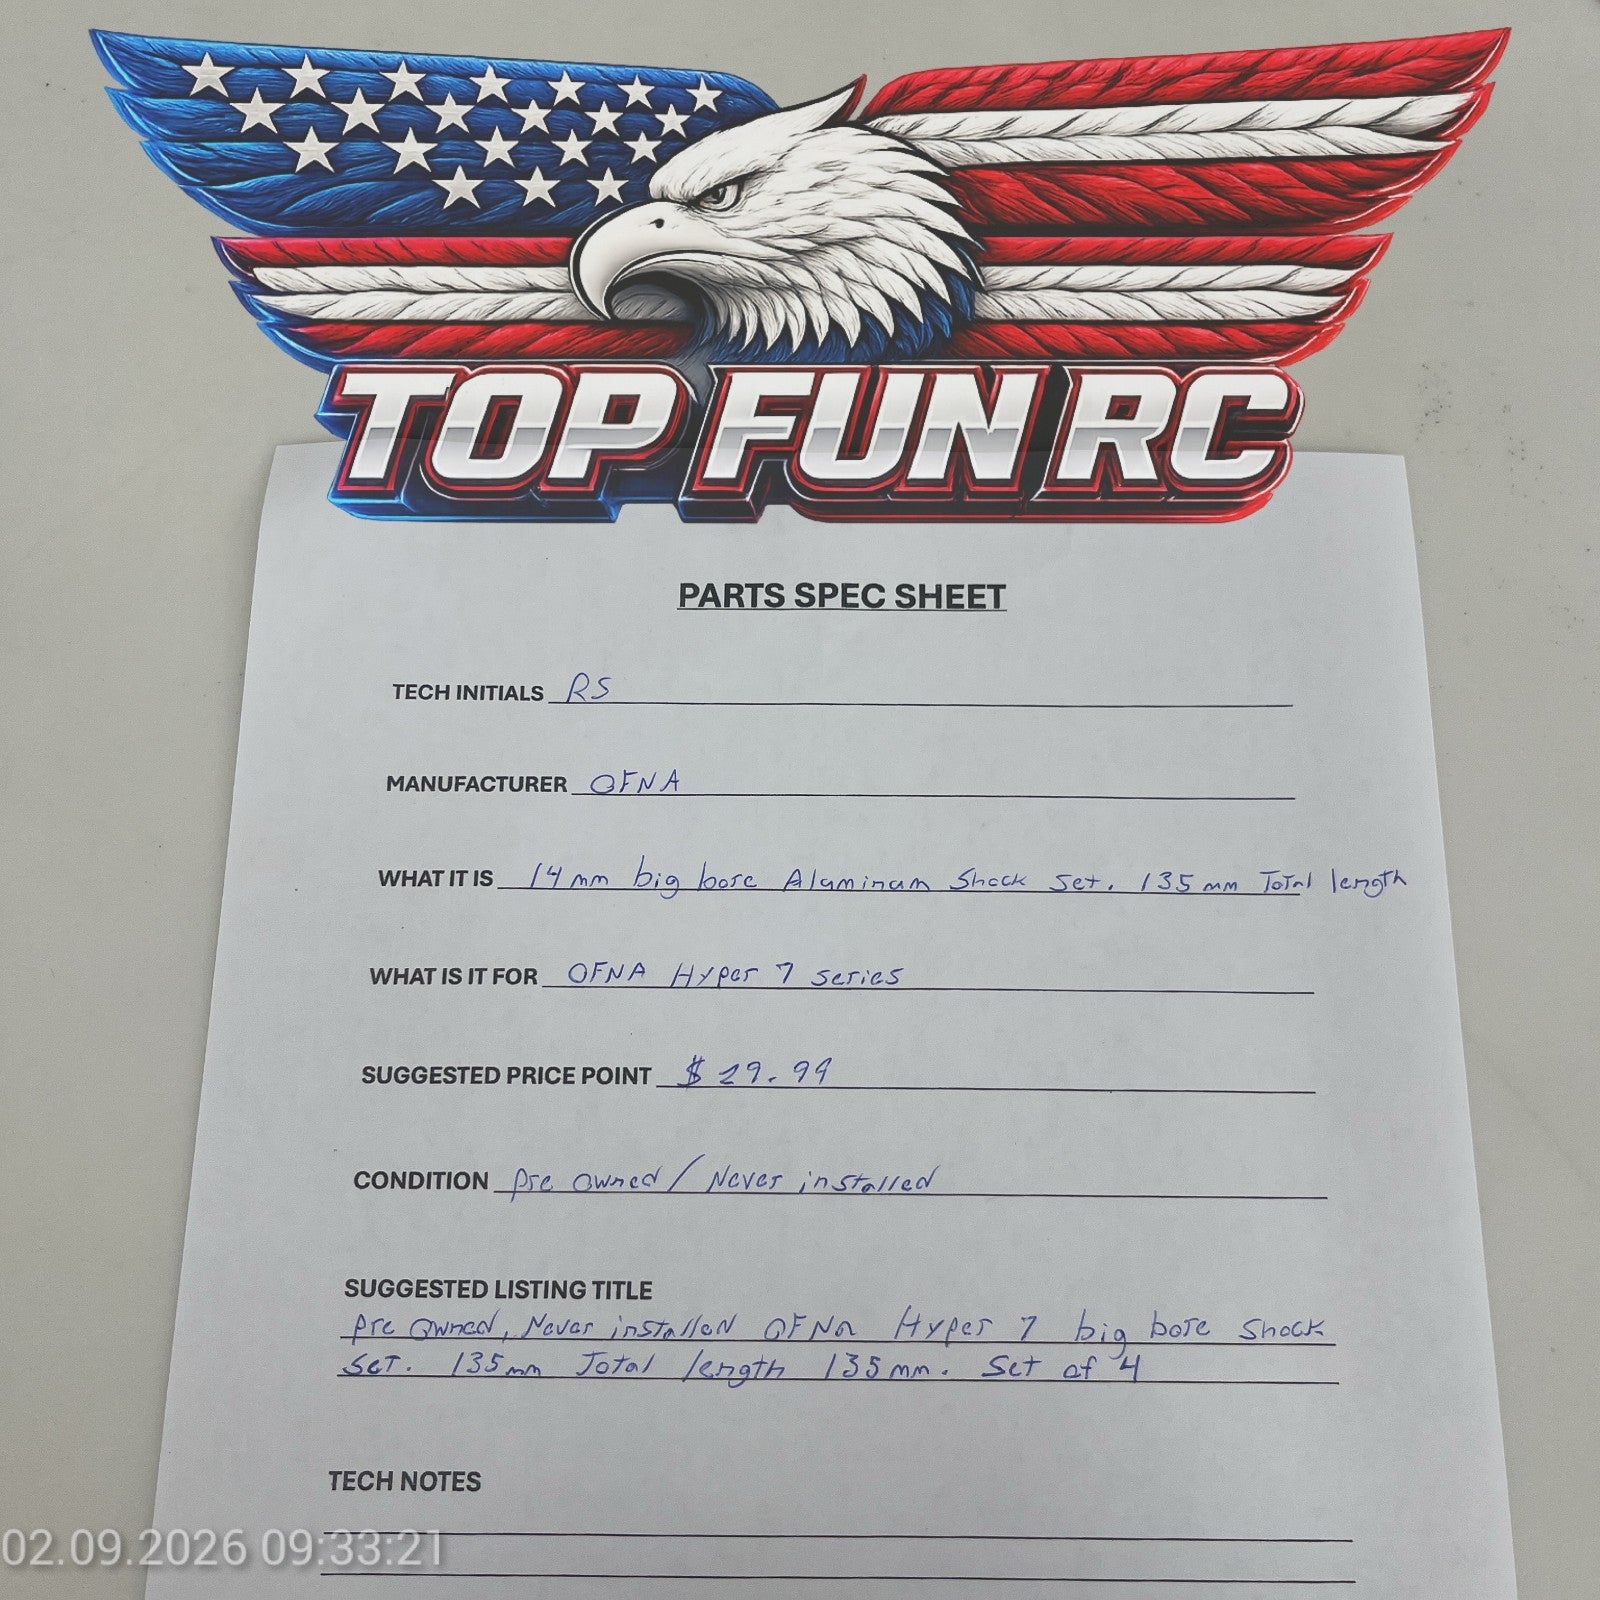 TOP FUN RC
PARTS SPEC SHEET
TECH INITIALS RS
MANUFACTURER OFNA
WHAT IT IS 14mm big bore Aluminum Shock Set. 135mm Total length
WHAT IS IT FOR OFNA Hyper 7 series
SUGGESTED PRICE POINT $29.99
CONDITION Pre Owned / Never installed
SUGGESTED LISTING TITLE
Pre Owned, Never installed OFNA Hyper 7 big bore Shock
Set. 135mm Total length 135mm. Set of 4
TECH NOTES
02.09.2026 09:33:21